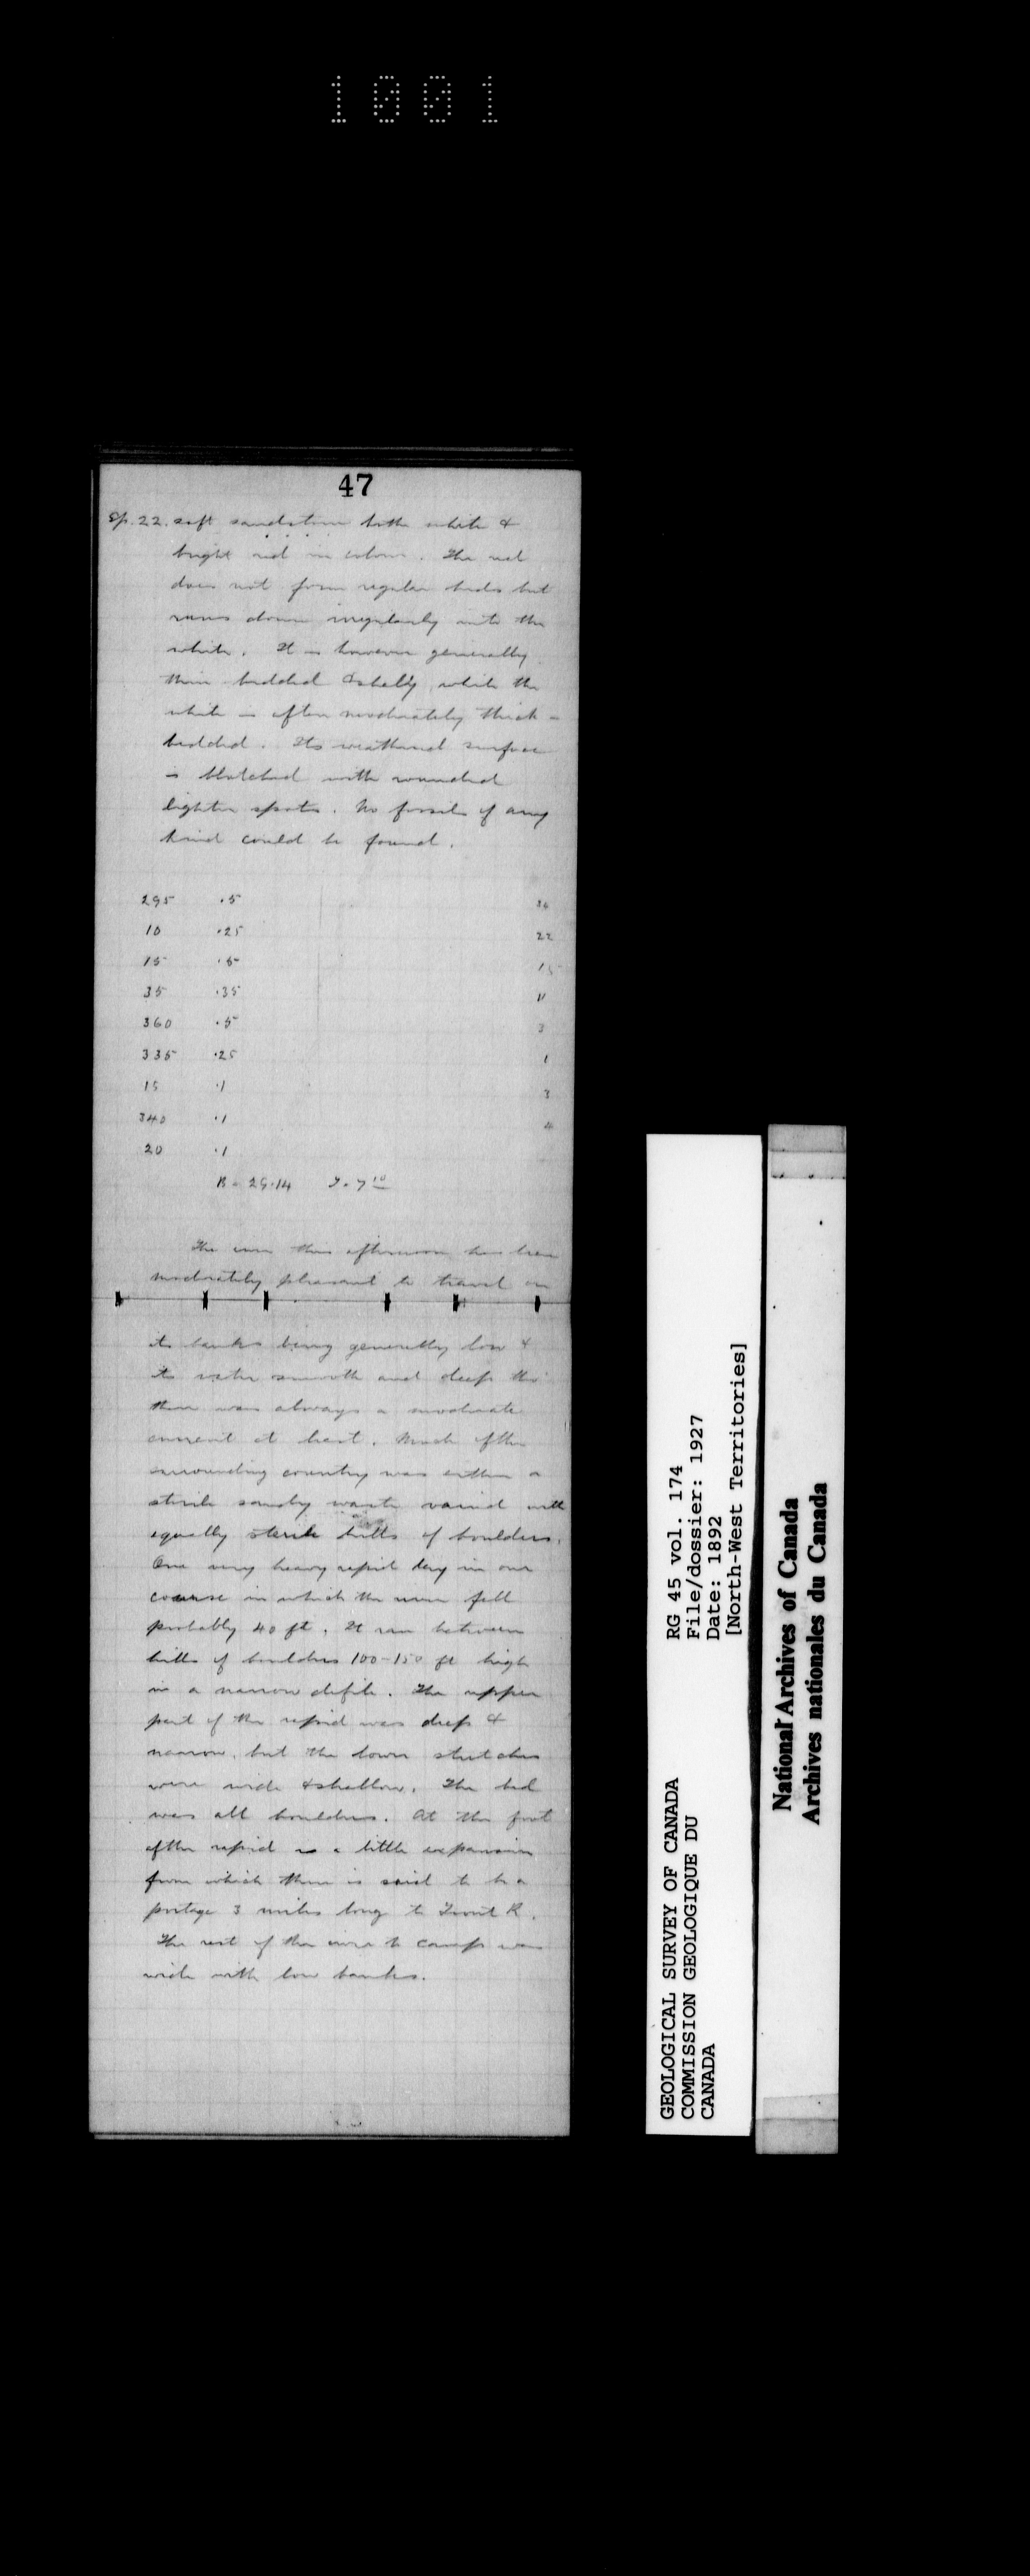 1001
47
Sp. 22. soft sandstone both white &
bright red in colour. The red
does not form regular beds but
runs down irregularly into the
white. It is however generally
thin bedded & shaly while the
white is often moderately thick-
bedded. Its weathered surface
is blotched with rounded
lighter spots. No fossils of any
kind could be found.
295 .5 36
10 .25 22
15 .5 15
35 .35 11
360 .5 3
335 .25 1
15 .1 3
340 .1 4
20 .1
B = 29.14 7 10
The river this afternoon has been
moderately pleasant to travel on
its banks being generally low &
its water smooth and deep tho'
there was always a moderate
current at least. Much of the
surrounding country was either a
sterile sandy waste varied with
equally sterile hills of boulders.
One very heavy rapid lay in our
course in which the river fell
probably 40 ft. It ran between
hills of boulders 100-150 ft high
in a narrow defile. The upper
part of the rapid was deep &
narrow, but the lower stretches
were wide & shallow. The bed
was all boulders. At the foot
of the rapid is a little expansion
from which there is said to be a
portage 3 miles long to Trout R.
The rest of the river to camp was
wide with low banks.
GEOLOGICAL SURVEY OF CANADA
COMMISSION GEOLOGIQUE DU
CANADA
RG 45 vol. 174
File/dossier: 1927
Date: 1892
[North-West Territories]
National Archives of Canada
Archives nationales du Canada